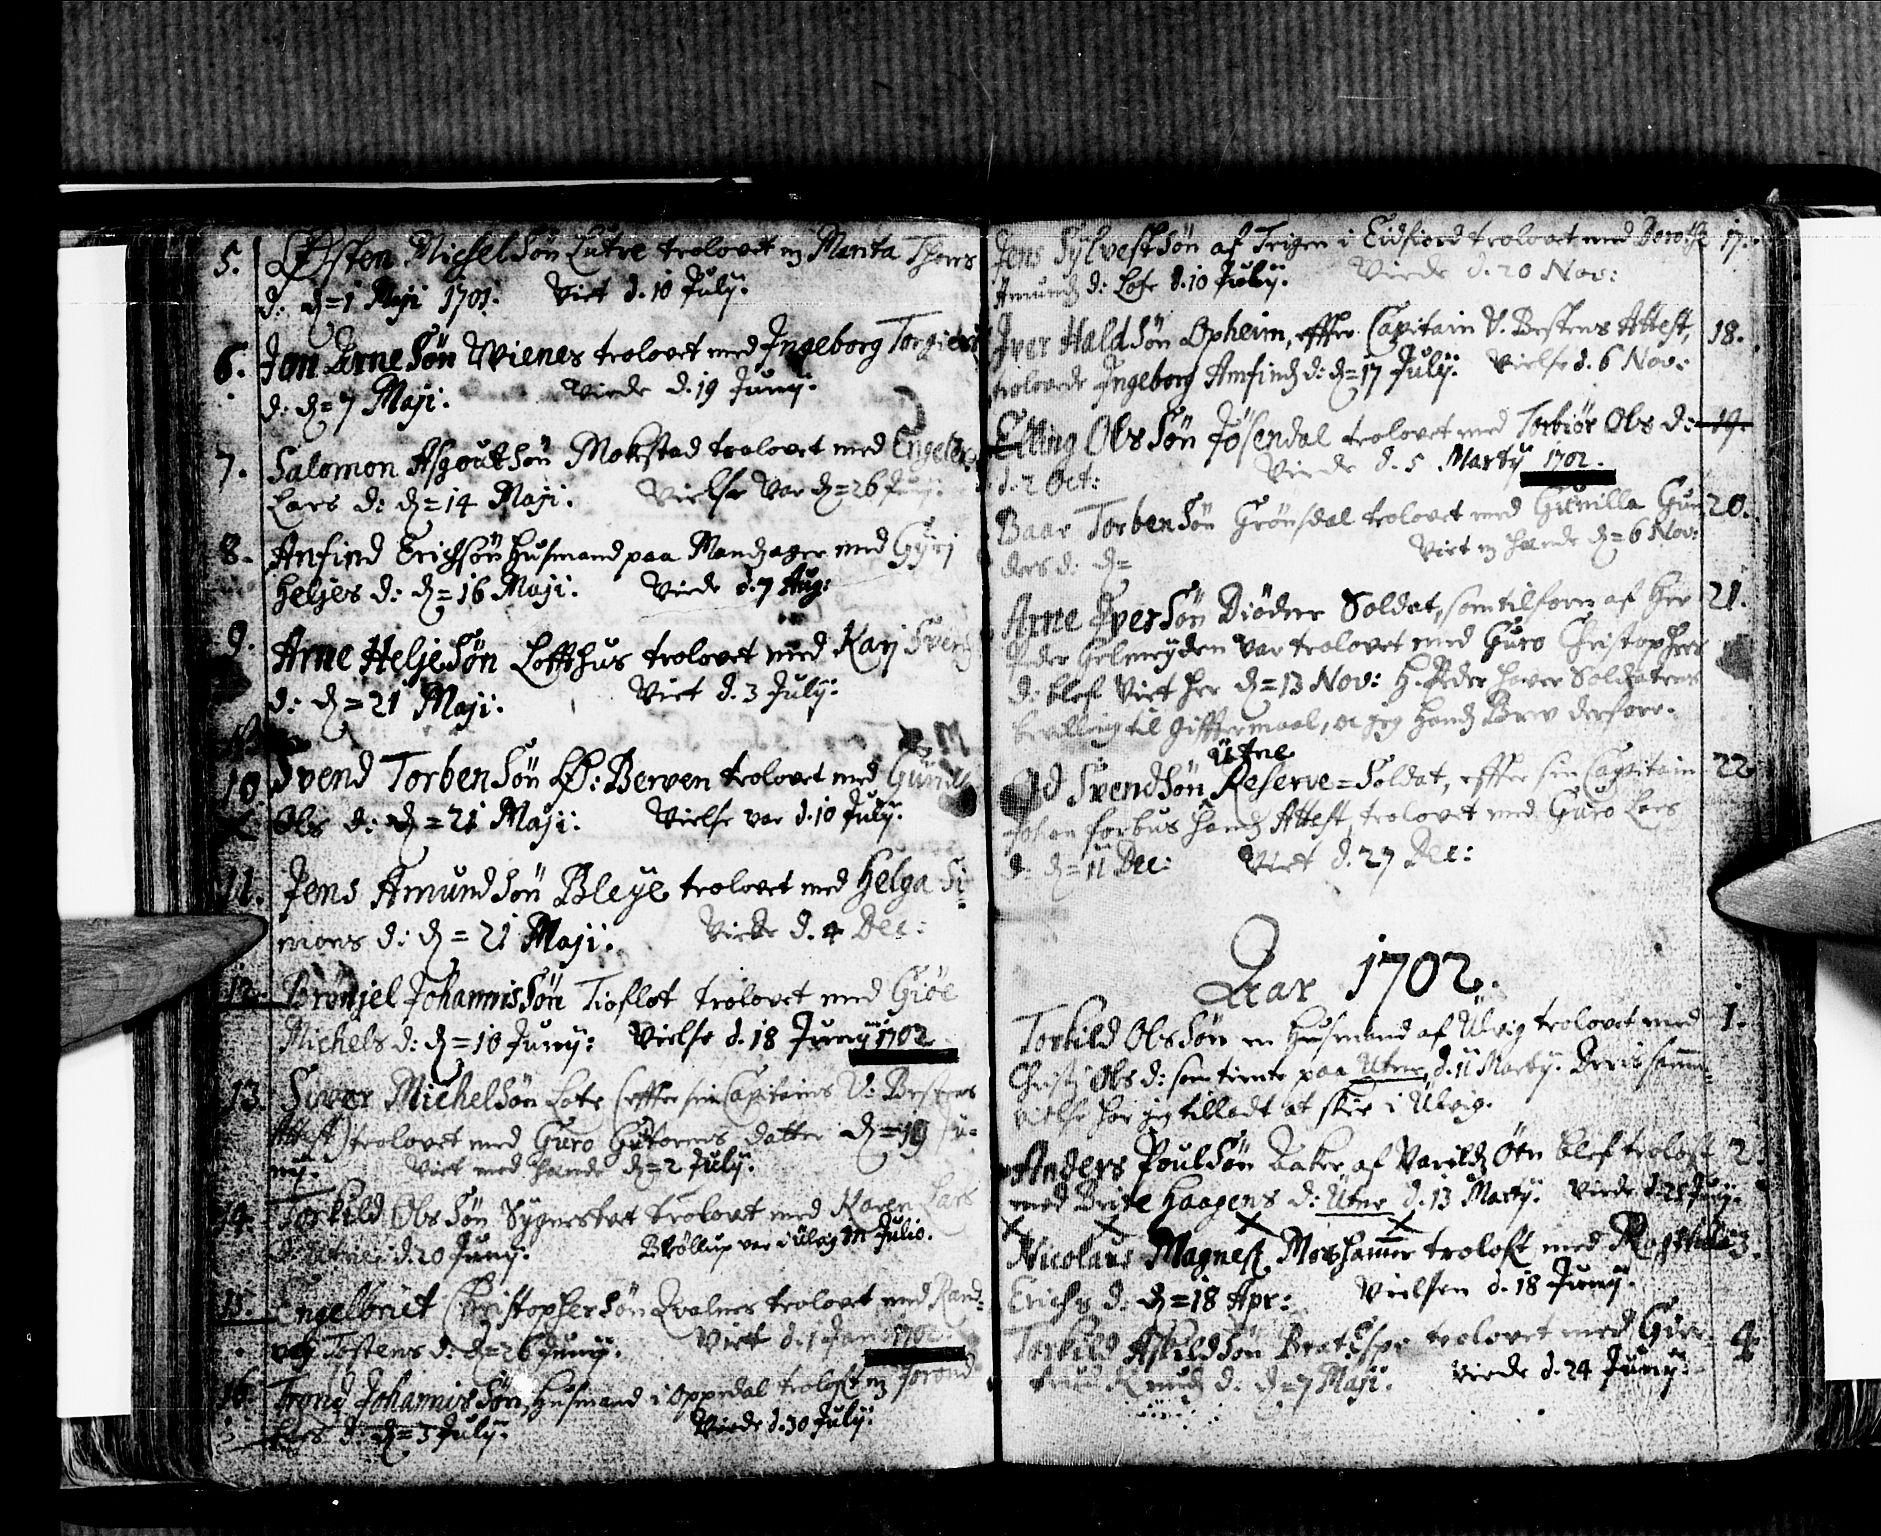 5. Østen Michelsøn Lutre trolovet m Marita Thors
d: d=1 Maji 1701. Viet d. 10 July.
6. Jon Arnesøn Wienes trolovet med Ingeborg Torgiers
d: d=7 Maji. Viede d. 19 Junij.
7. Salomon Asgoutsøn Mokestad trolovet med Engelb
Lars d: d=14 Maji. Vielse var d=26 Junij.
8. Anfind Erichsøn Husmand paa Mandzager med Gyri
Heljes d: d=16 Maji. Viede d. 7 Aug:
9. Arne Heljesøn Loffthus trolovet med Karj Svends
d: d=21 Maji. Viet d. 3 July.
10. Svend Torbensøn Ø: Berven trolovet med Gunde
Ols d: d=21 Maji. Vielse var d. 10 July.
11. Jens Amundsøn Bleye trolovet med Helga Si-
mons d: d=21 Maji. Viede d. 4 Dec:
12. Brønjel Johannissøn Tioflot trolovet med Giøe
Michels d: d=10 Junij: Vielse d. 18 Junij 1702
13. Siver Michelsøn Lote (effter sin Capitains V. Bestens
Attest) trolovet med Guro Guttorms datter d=19 Ju-
nij. Viet med hende d=2 July.
14. Torkild Olssøn Sygnestvet trolovet med Karen Lars
d: d. 20 Junij. Brøllup var i Ulvig Julio.
15. Engelbriet Christophersøn Qvalnes trolovet med Rand-
vej Tostens d: d=26 Junij. Viet d. 1 Jan 1702.
16. Trond Johannissøn Husmand i Oppedal troloft m Jorond
Lars d: d=3 July. Viede d. 30 July.
Jens Sylvestsøn af Trigen i Eidfiord trolovet med Dorothe 17.
Amundz d: Lote d. 10 July. Viede d. 20 Nov:
Iver Haldsøn Opheim, effter Capitain V. Bestens Attest, 18.
trolovede Ingeborg Amfindz d: d=17 July. Vielse d. 6 Nov:
Elling Olssøn Jøsendal trolovet med Torbiør Ols d: 19.
d. 2 Oct: Viede d. 5 Martij 1702.
Baar Torbensøn Grønsdal trolovet med Gunilla Gun 20.
ders d: d= Viet m hende d=6 Nov:
Arne Iversøn Diødne Soldat, som tilforn af Her 21.
Peder Gelmeyden var trolovet med Guro Christophers
d: blef Viet her d=13 Nov: H. Peder haver Soldatens
bevilling til gifftermaal, oc jeg hands Brev derfore.
Utne
d Svendsøn Reserve=Soldat, effter sin Capitain 22
Johan Forbus handz Attest, trolovet med Guro Lars
d. d=11 Dec: Viet d. 27 Dec:
Aar 1702.
Torkild Olssøn en Husmand af Ulvig trolovet med 1.
Christj Ols d: som tiente paa Utne, d. 11 Martij. Deris samm-
vielse har jeg tilladt at skee i Ulvig.
Anders Poulsøn Aaker af Varildzøen blef troloft 2.
med Brite Haagens d: Utne d. 13 Martij. Viede d. 25 Junij.
Nicolaus Magness. Morshamer troloft med Magthilde 3.
Erichs d: d=18 Apr: Vielsen d. 18 Junij.
Torkild Askildsøn Bratespe trolovet med Guro 4.
Knudz d: d=7 Maji. Viede d. 24 Junij.